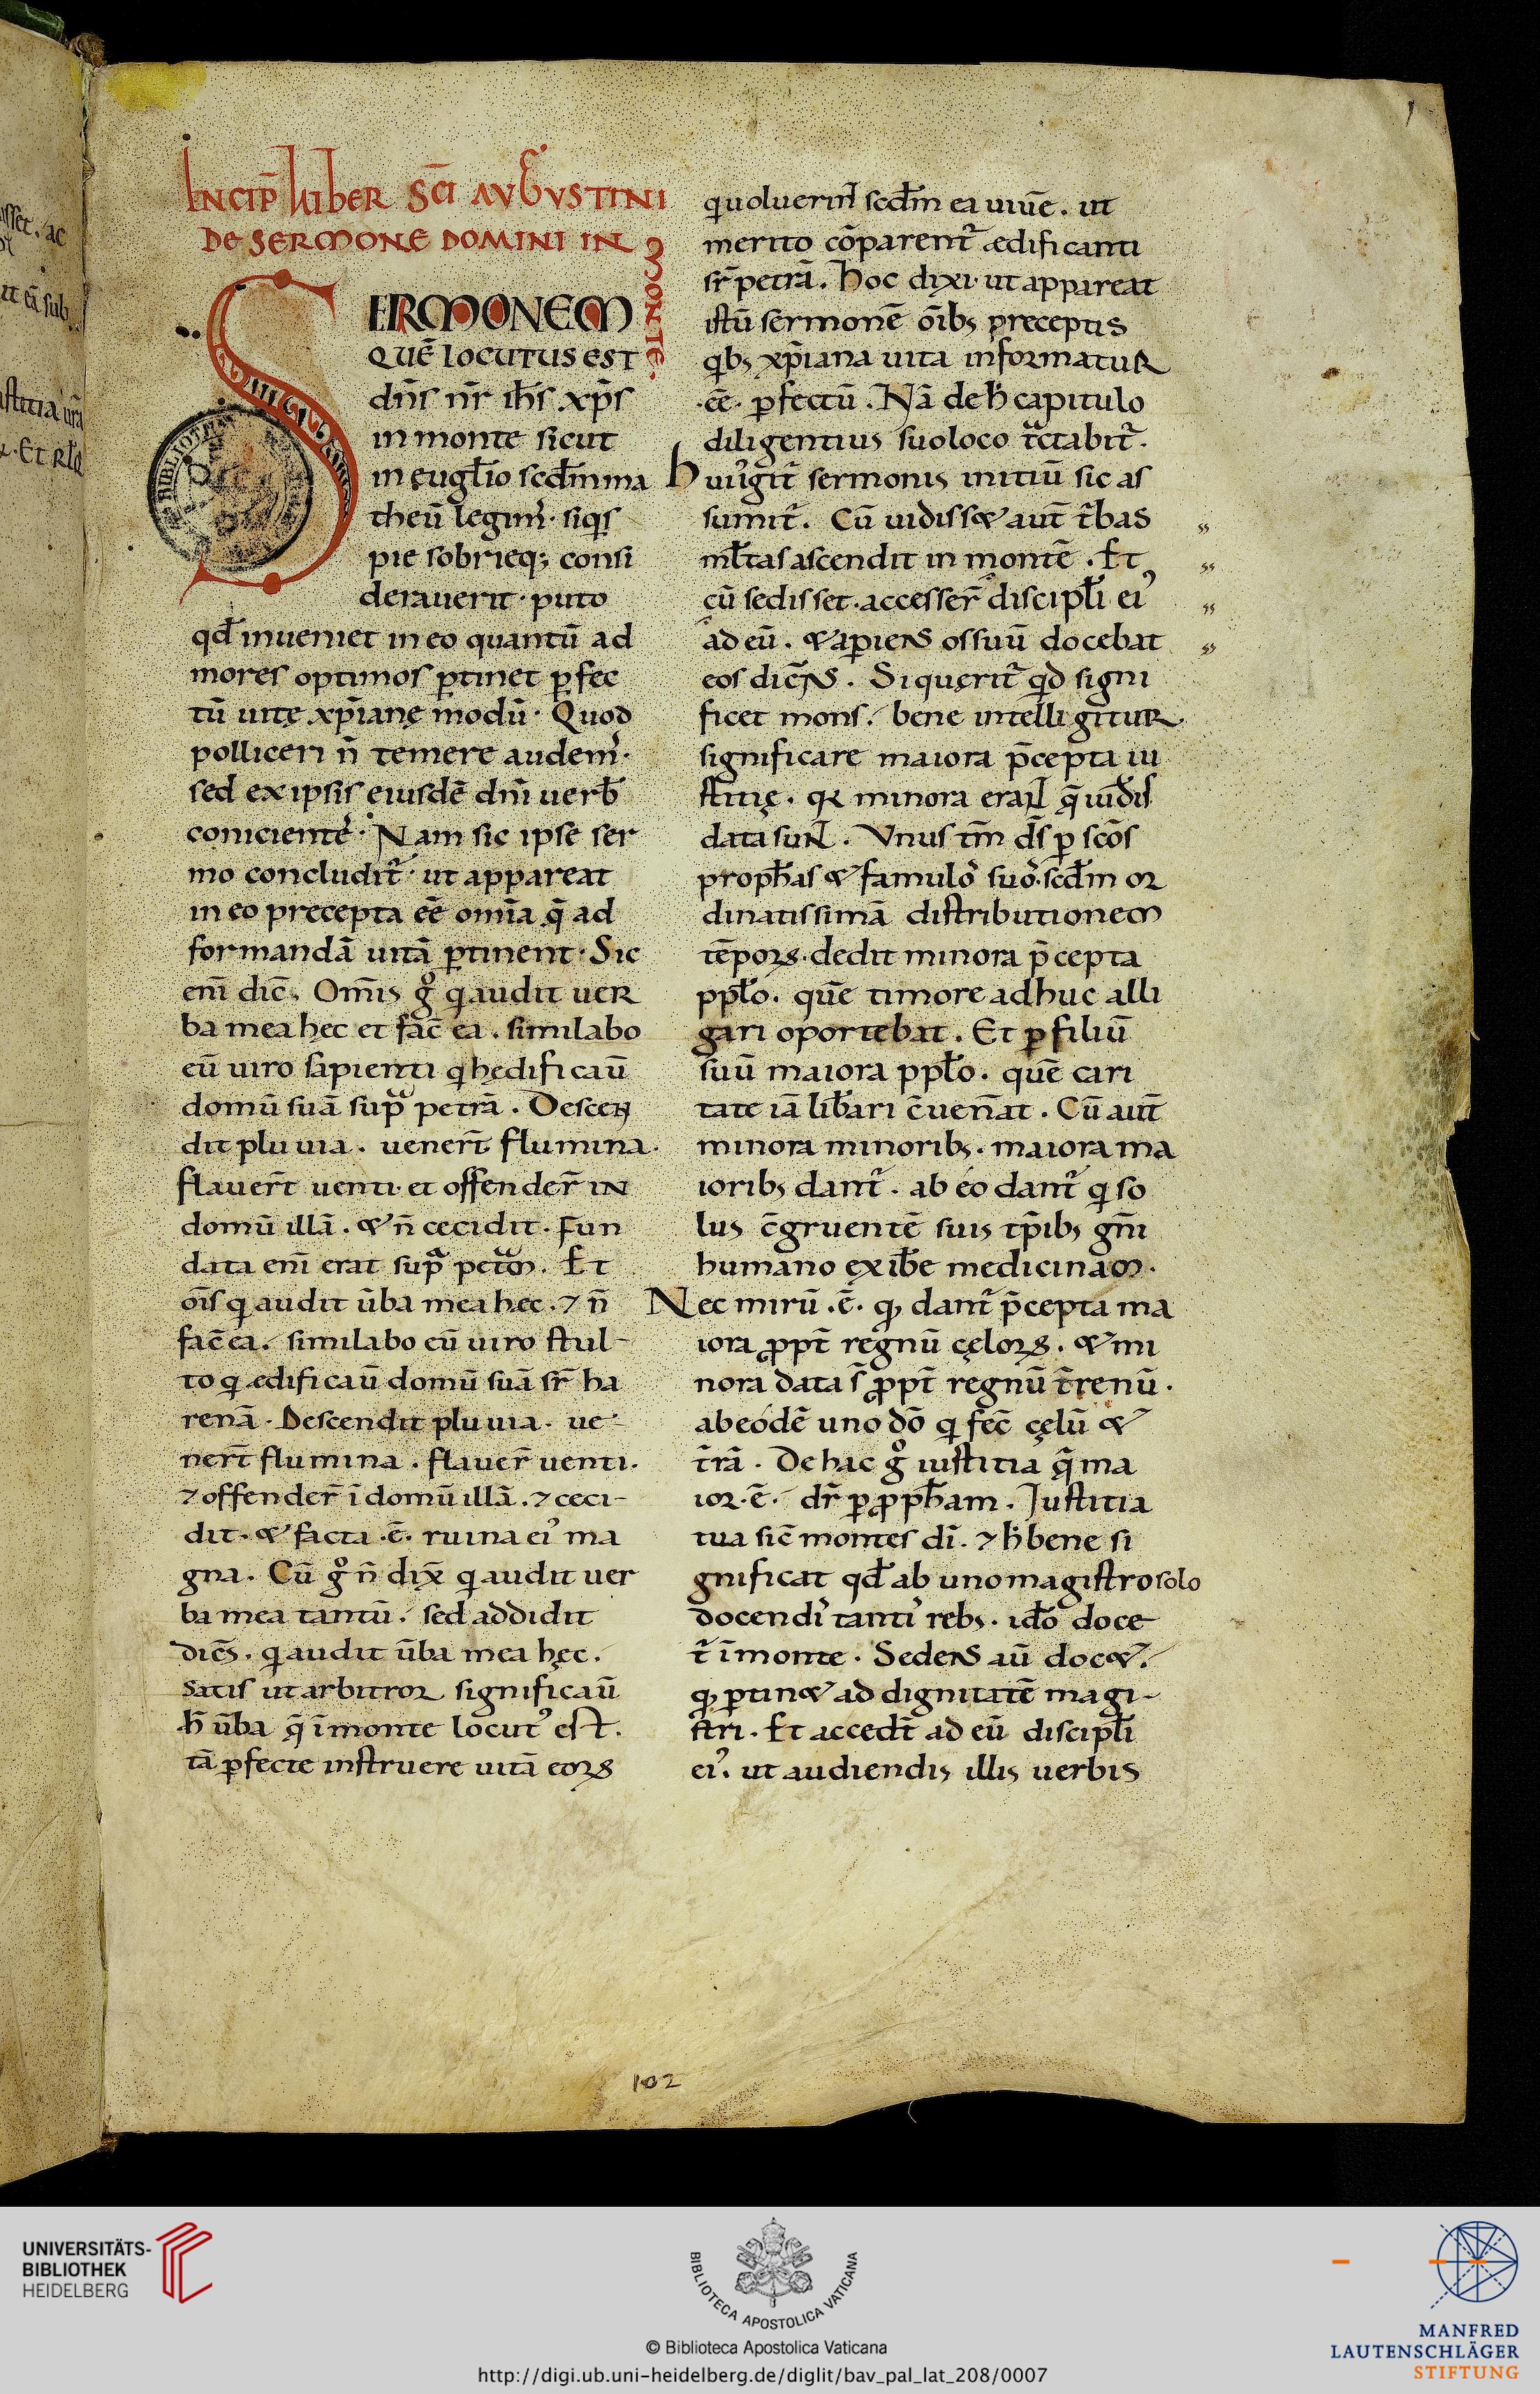 asset. ac
it eā sub
stitia ura
Et
INCIP̄ LIBER SC̄I AUGUSTINI
DE SERMONE DOMINI IN
MONTE.
SERMONEM
QUĒ LOCUTUS EST
dn̄s nr̄ ih̄s xp̄s
in monte sicut
in eugl̄io scd̄m ma
theū legim᾿· siq̄s
pie sobrieq; consi
derauerit· puto
qđ inueniet in eo quantū ad
mores optimos ꝑtinet ꝑfec
tū uitę xp̄ianę modū· Quod
polliceri n̄ temere audem᾿·
sed ex ipsis eiusdē dn̄i uerb̄
conicientē᾿· Nam sic ipse ser
mo concludit᾿· ut appareat
in eo precepta eē omīa q̄ ad
formandā uitā ꝑtinent· Sic
enī dic̄. Om̄is gͦ qͥ audit uer
ba mea hęc et fac̄ ea. similabo
eū uiro sapienti qͥ hędificaū
domū suā supᷓ petrā. Descen
dit pluuia. venerт̄ flumina.
flauerт̄ uenti· et offender̄ in
domū illā. & n̄ cecidit. Fun
data enī erat supᷓ petᷓm. Et
oīs qͥ audit ūba mea hec. ⁊ n̄
fac̄ ea. similabo eū uiro stul-
to qͥ ædificaū domū suā sr̄ ha
renā. Descendit pluuia. ue
nerт̄ flumina. flauer̄ uenti.
⁊ offender̄ ī domū illā. ⁊ ceci-
dit. & facta .ē. ruina ei᾿ ma
gna. Cū gͦ n̄ dix̄ qͥ audit uer
ba mea tantū. sed addidit
diēs. qͥ audit ūba mea hęc.
satis ut arbitror significaū
h̄ ūba q̄ ī monte locut᾿ est.
tā ꝑfecte instruere uitā eoꝝ
qͥ uoluerinт scd̄m ea uiūe. ut
merito cōparent᾿ ædificanti
sr̄ petrā. Hoc dixi· ut appareat
istū sermonē oīb; preceptis
qͥb; xp̄iana uita informatur
·eē· ꝑfectū. Nā de h̄ capitulo
diligentius suo loco tᷓctabit᾿.
Huiᷣgit᾿ sermonis initiū sic as
sumit᾿. Cū uidiss& aut̄ t᾿bas
ml̄tas ascendit in montē. Et
cū sedisset. accesser̄ discipl̄i ei᾿
ad eū. & apiens os suū docebat
eos dicēns. Si quęrit᾿ qͥd signi
ficet mons. bene intelligitur
significare maiora p̄cepta iu
stitię. qꝛ minora eranт q̄ iud̄is
data sunт. Vnus tm̄ dс̄ ꝑ scōs
proph̄as & famulo᾿ suo᾿. scd̄m or
dinatissimā distributionem
tēpoꝝ. dedit minora p̄cepta
ppl̄o. quē timore adhuc alli
gari oportebat. Et ꝑ filiū
suū maiora ppl̄o. quē cari
tate iā lib̄ari c̄uen̄at. Cū aut̄
minora minorib;. maiora ma
iorib; dant᾿. ab eo dant᾿ qͥ so
lus c̄gruentē suis tp̄ib; gn̄i
humano exib̄e medicinam.
Nec mirū .ē. qͣ dant᾿ p̄cepta ma
iora ꝓpt̄ regnū cęloꝝ. & mi
nora data s̄ ꝓpt̄ regnū t̄renū.
ab eodē uno dō qͥ fec̄ cęlū &
t̄rā. De hac gͦ iustitia q̄ ma
ior .ē. dr̄ ꝑ ꝓph̄am. Justitia
tua sic̄ montes dī. ⁊ h̄ bene si
gnificat qđ ab uno magistro solo
docendi᾿ tanti᾿ reb;. id̄o doce
t᾿ ī monte. Sedens aū doc&.
qͣ ꝑtin& ad dignitatē magi-
stri. Et accedт̄ ad eū discipl̄i
ei᾿. ut audiendis illis uerbis
102
UNIVERSITÄTS-
BIBLIOTHEK
HEIDELBERG
BIBLIOTECA APOSTOLICA VATICANA
© Biblioteca Apostolica Vaticana
http://digi.ub.uni-heidelberg.de/diglit/bav_pal_lat_208/0007
MANFRED
LAUTENSCHLÄGER
STIFTUNG